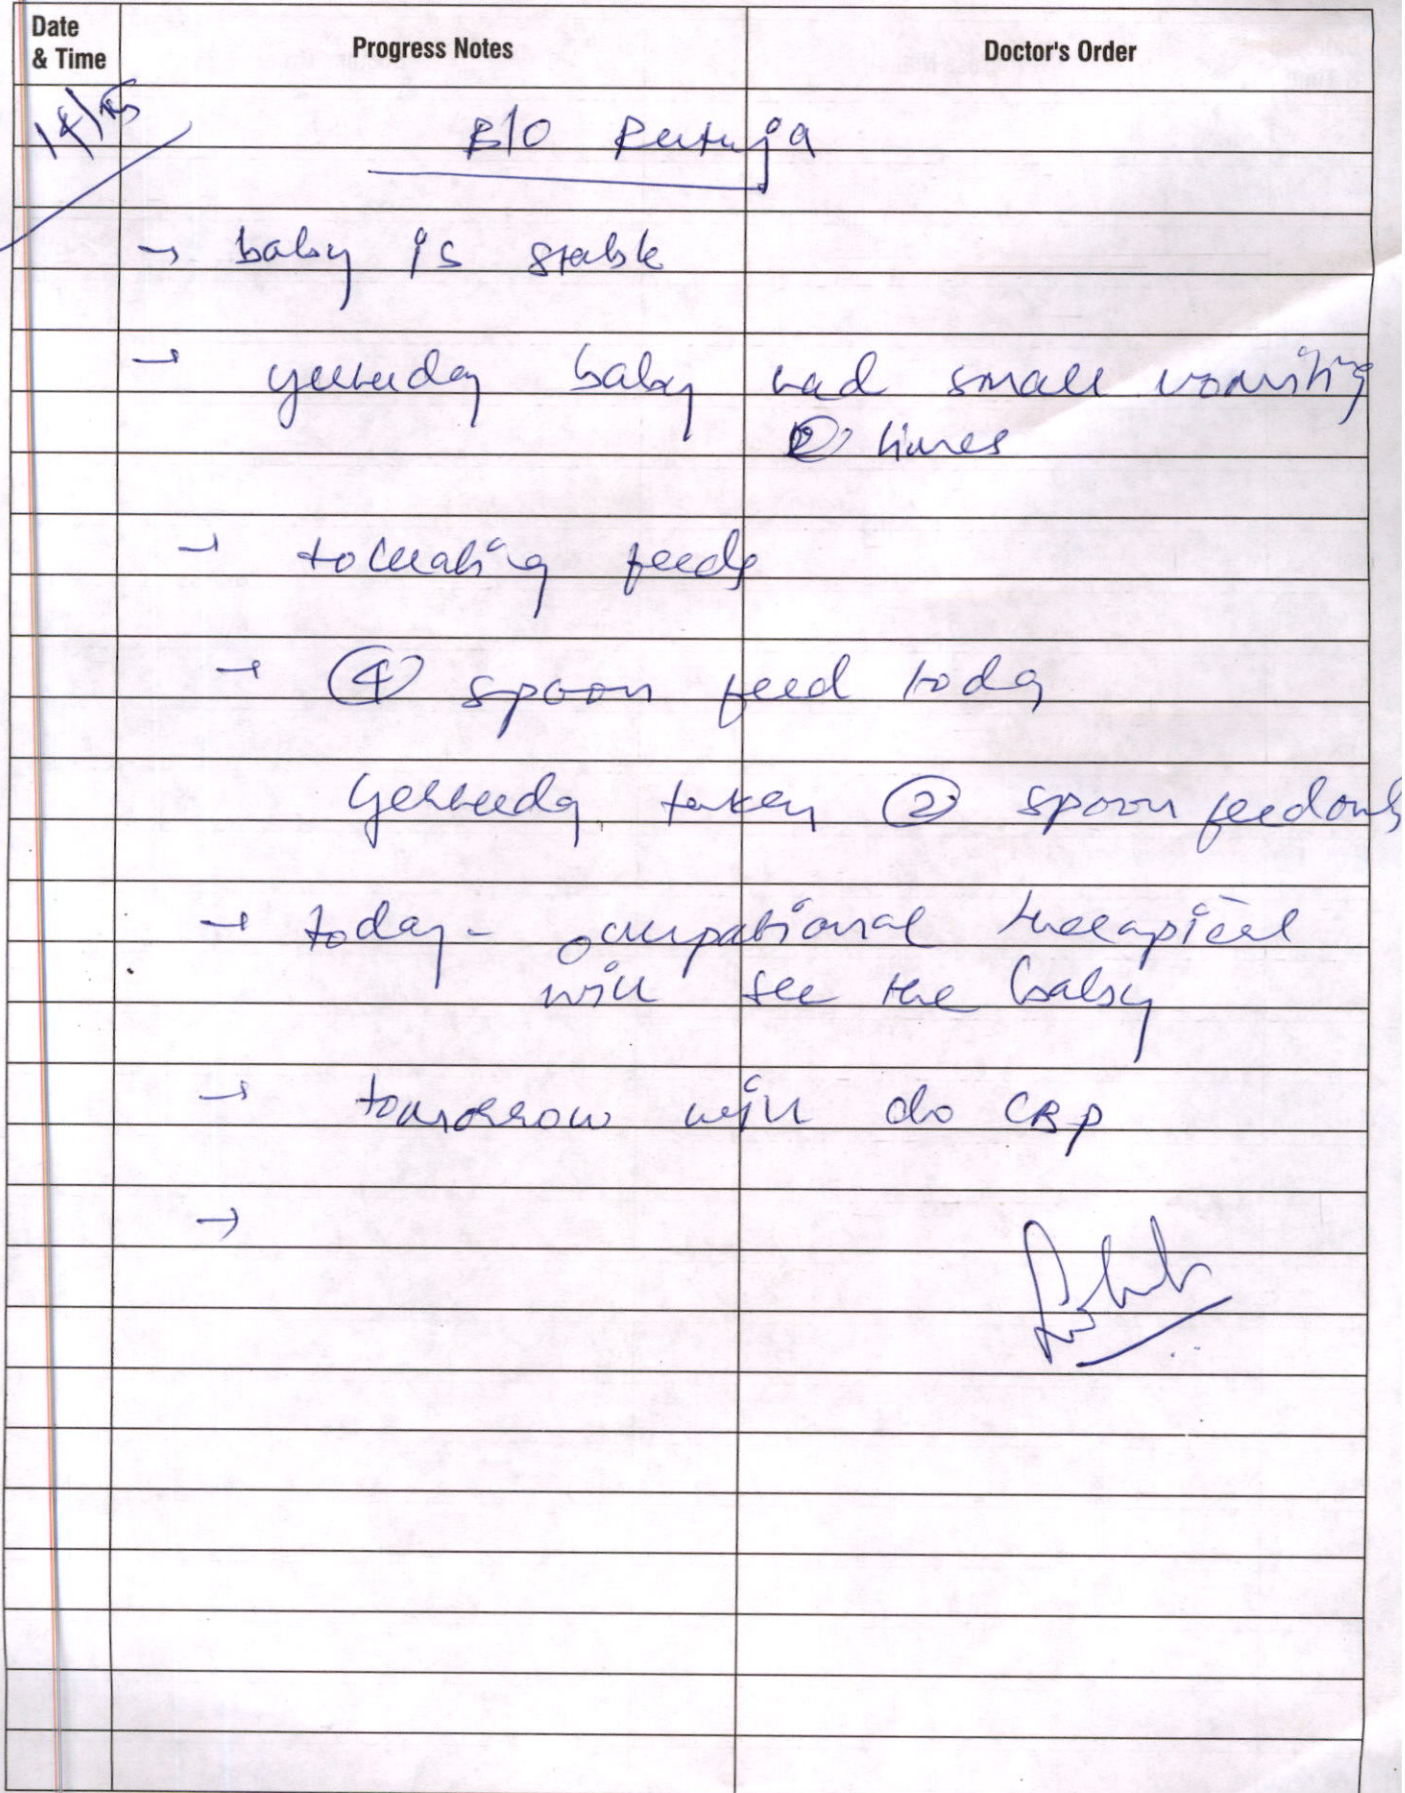 Date & Time Progress Notes Doctor's Order
B/O Rutuja
→ baby is stable
→ yesterday baby had small vomiting
② times
→ tolerating feeds
→ ④ spoon feed today
yesterday taken ② spoon feed only
→ today - occupational therapist
will see the baby
→ tomorrow will do CBP
→